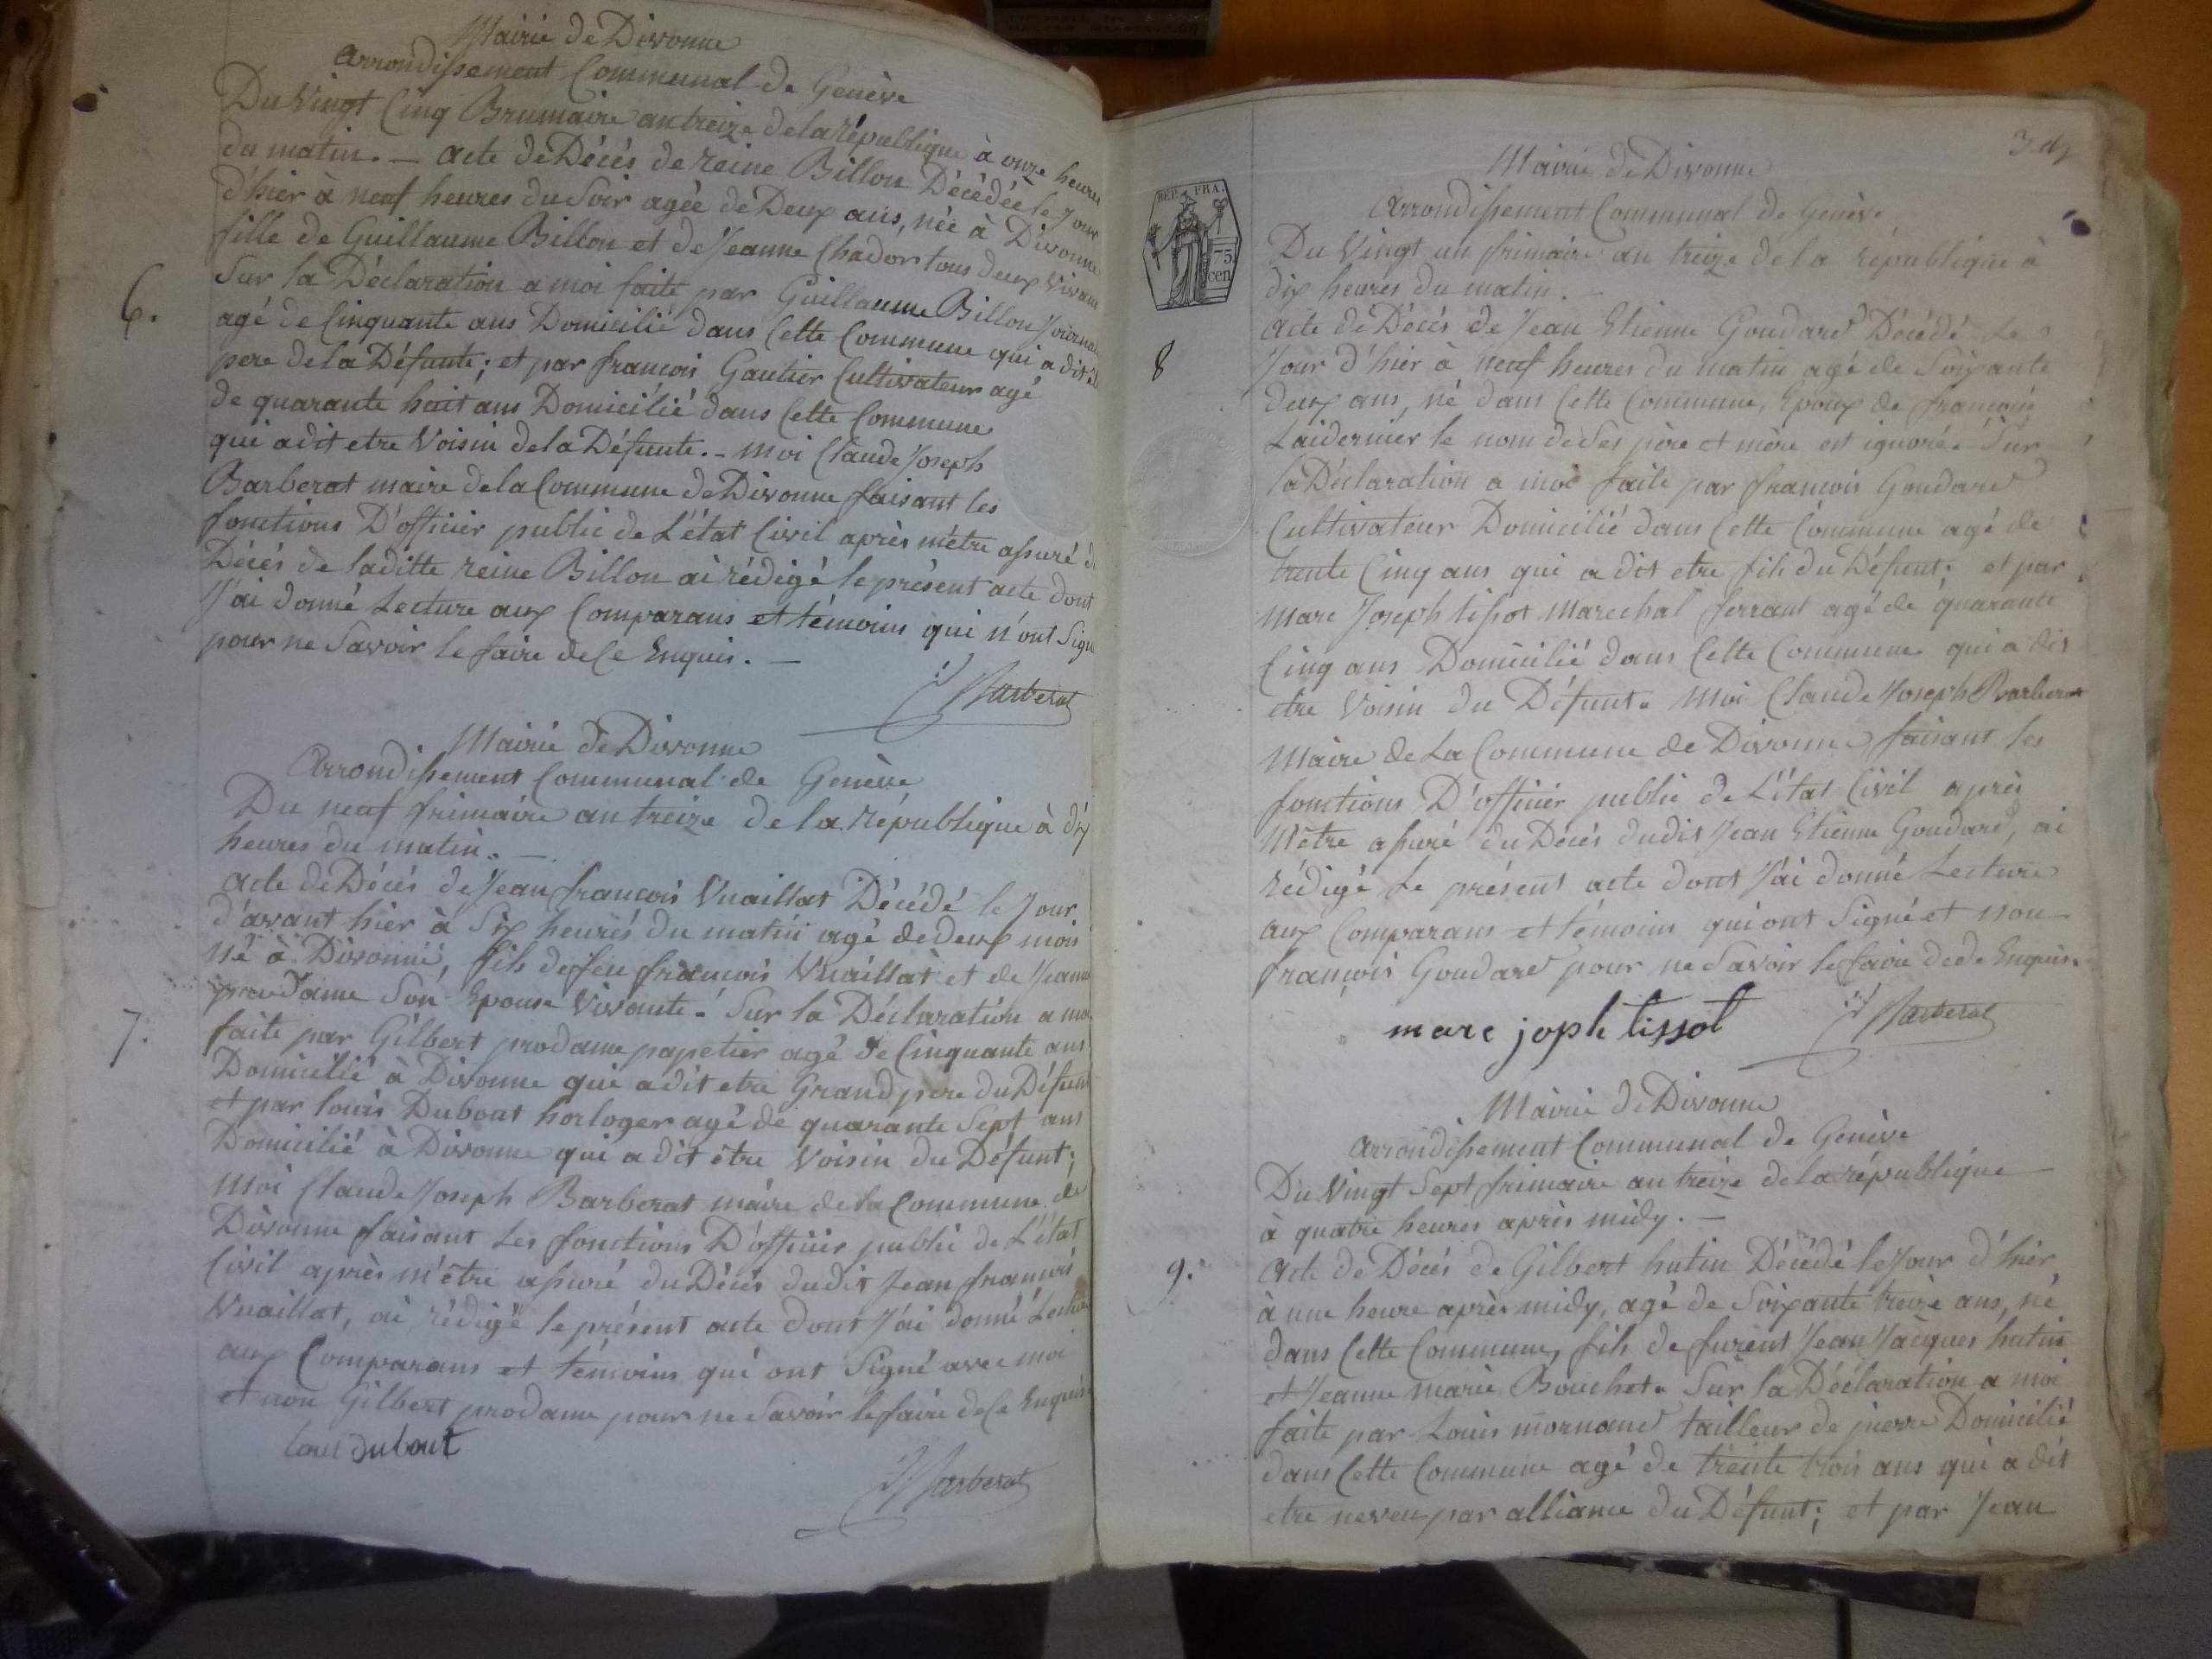 Mairie de Divonne
Arrondissement Communal de Genève
Du Vingt Cinq Brumaire an treize de la république à onze heures
du matin. — Acte de Décés de reine Billon Décédée le Jour
d'hier à neuf heures du Soir agée de Deux ans, née à Divonne
fille de Guillaume Billon et de Jeanne Chador tous deux Vivans
Sur la Déclaration a moi faite par Guillaume Billon
6.
agé de Cinquante ans Domicilié dans Cette Commune qui a dit
pere de la Défunte; et par francois Gautier Cultivateur agé
de quarante huit ans Domicilié dans Cette Commune
qui a dit etre Voisin de la Défunte. - Moi Claude Joseph
Barberat maire de la Commune de Divonne faisant les
fonctions D'officier public de L'état Civil après m'être assuré du
Décés de laditte reine Billon ai rédigé le présent acte dont
J'ai donné Lecture aux Comparans et témoins qui n'ont Signé
pour ne Savoir le faire de Ce Enquis. —
Barberat
Mairie de Divonne
Arrondissement Communal de Genève
Du neuf frimaire an treize de la république à dix
heures du matin. —
acte de Décés de Jean francois Vuaillat Décédé le Jour
d'avant hier à Six heures du matin agé de deux mois
Né à Divonne, fils de feu francois Vuaillat et de Jeanne
prodame Son Epouse Vivante. Sur la Déclaration a moi
7.
faite par Gilbert prodame papetier agé de Cinquante ans
Domicilié à Divonne qui a dit etre Grand pere du Défunt
et par louis Dubout horloger agé de quarante Sept ans
Domicilié à Divonne qui a dit être Voisin du Défunt;
Moi Claude Joseph Barberat maire de la Commune de
Divonne faisant les fonctions D'officier public de L'état
Civil après m'être assuré du Décés dudit Jean francois
Vuaillat, ai rédigé le présent acte dont J'ai donné Lecture
aux Comparans et témoins qui ont Signé avec moi
et non Gilbert prodame pour ne Savoir le faire de Ce Enquis
Loui dubout
Barberat
Mairie de Divonne
Arrondissement Communal de Genève
REP. FRA.
75
cen
Du Vingt un frimaire an treize de la république à
dix heures du matin. —
Acte de Décés de Jean Etienne Goudard Décédé Le
8
Jour d'hier à neuf heures du matin agé de Soixante
deux ans, né dans Cette Commune, Epoux de francoise
Laidernier le nom de Ses père et mère est ignoré. Sur
la Déclaration a moi faite par francois Goudard
Cultivateur Domicilié dans Cette Commune agé de
trente Cinq ans qui a dit etre fils du Défunt; et par
Marc Joseph tissot Marechal ferrant agé de quarante
Cinq ans Domicilié dans Cette Commune qui a dit
etre Voisin du Défunt. Moi Claude Joseph Barberat
Maire de La Commune de Divonne faisant les
fonctions D'officier public de L'état Civil après
M'être assuré du Décés dudit Jean Etienne Goudard, ai
rédigé Le présent acte dont J'ai donné Lecture
aux Comparans et témoins qui ont Signé et non
francois Goudard pour ne Savoir le faire de Ce Enquis.
marc joph tissot
Barberat
Mairie de Divonne
Arrondissement Communal de Genève
Du Vingt Sept frimaire an treize de la république
à quatre heures après midy. —
9.
Acte de Décés de Gilbert hutin Décédé le Jour d'hier
à une heure après midy, agé de Soixante treize ans, né
dans Cette Commune, fils de furent Jean Jacques hutin
et Jeanne marie Bouchet. Sur la Déclaration a moi
faite par Louis mornand tailleur de pierre Domicilié
dans Cette Commune agé de trente trois ans qui a dit
etre neveu par alliance du Défunt; et par Jean